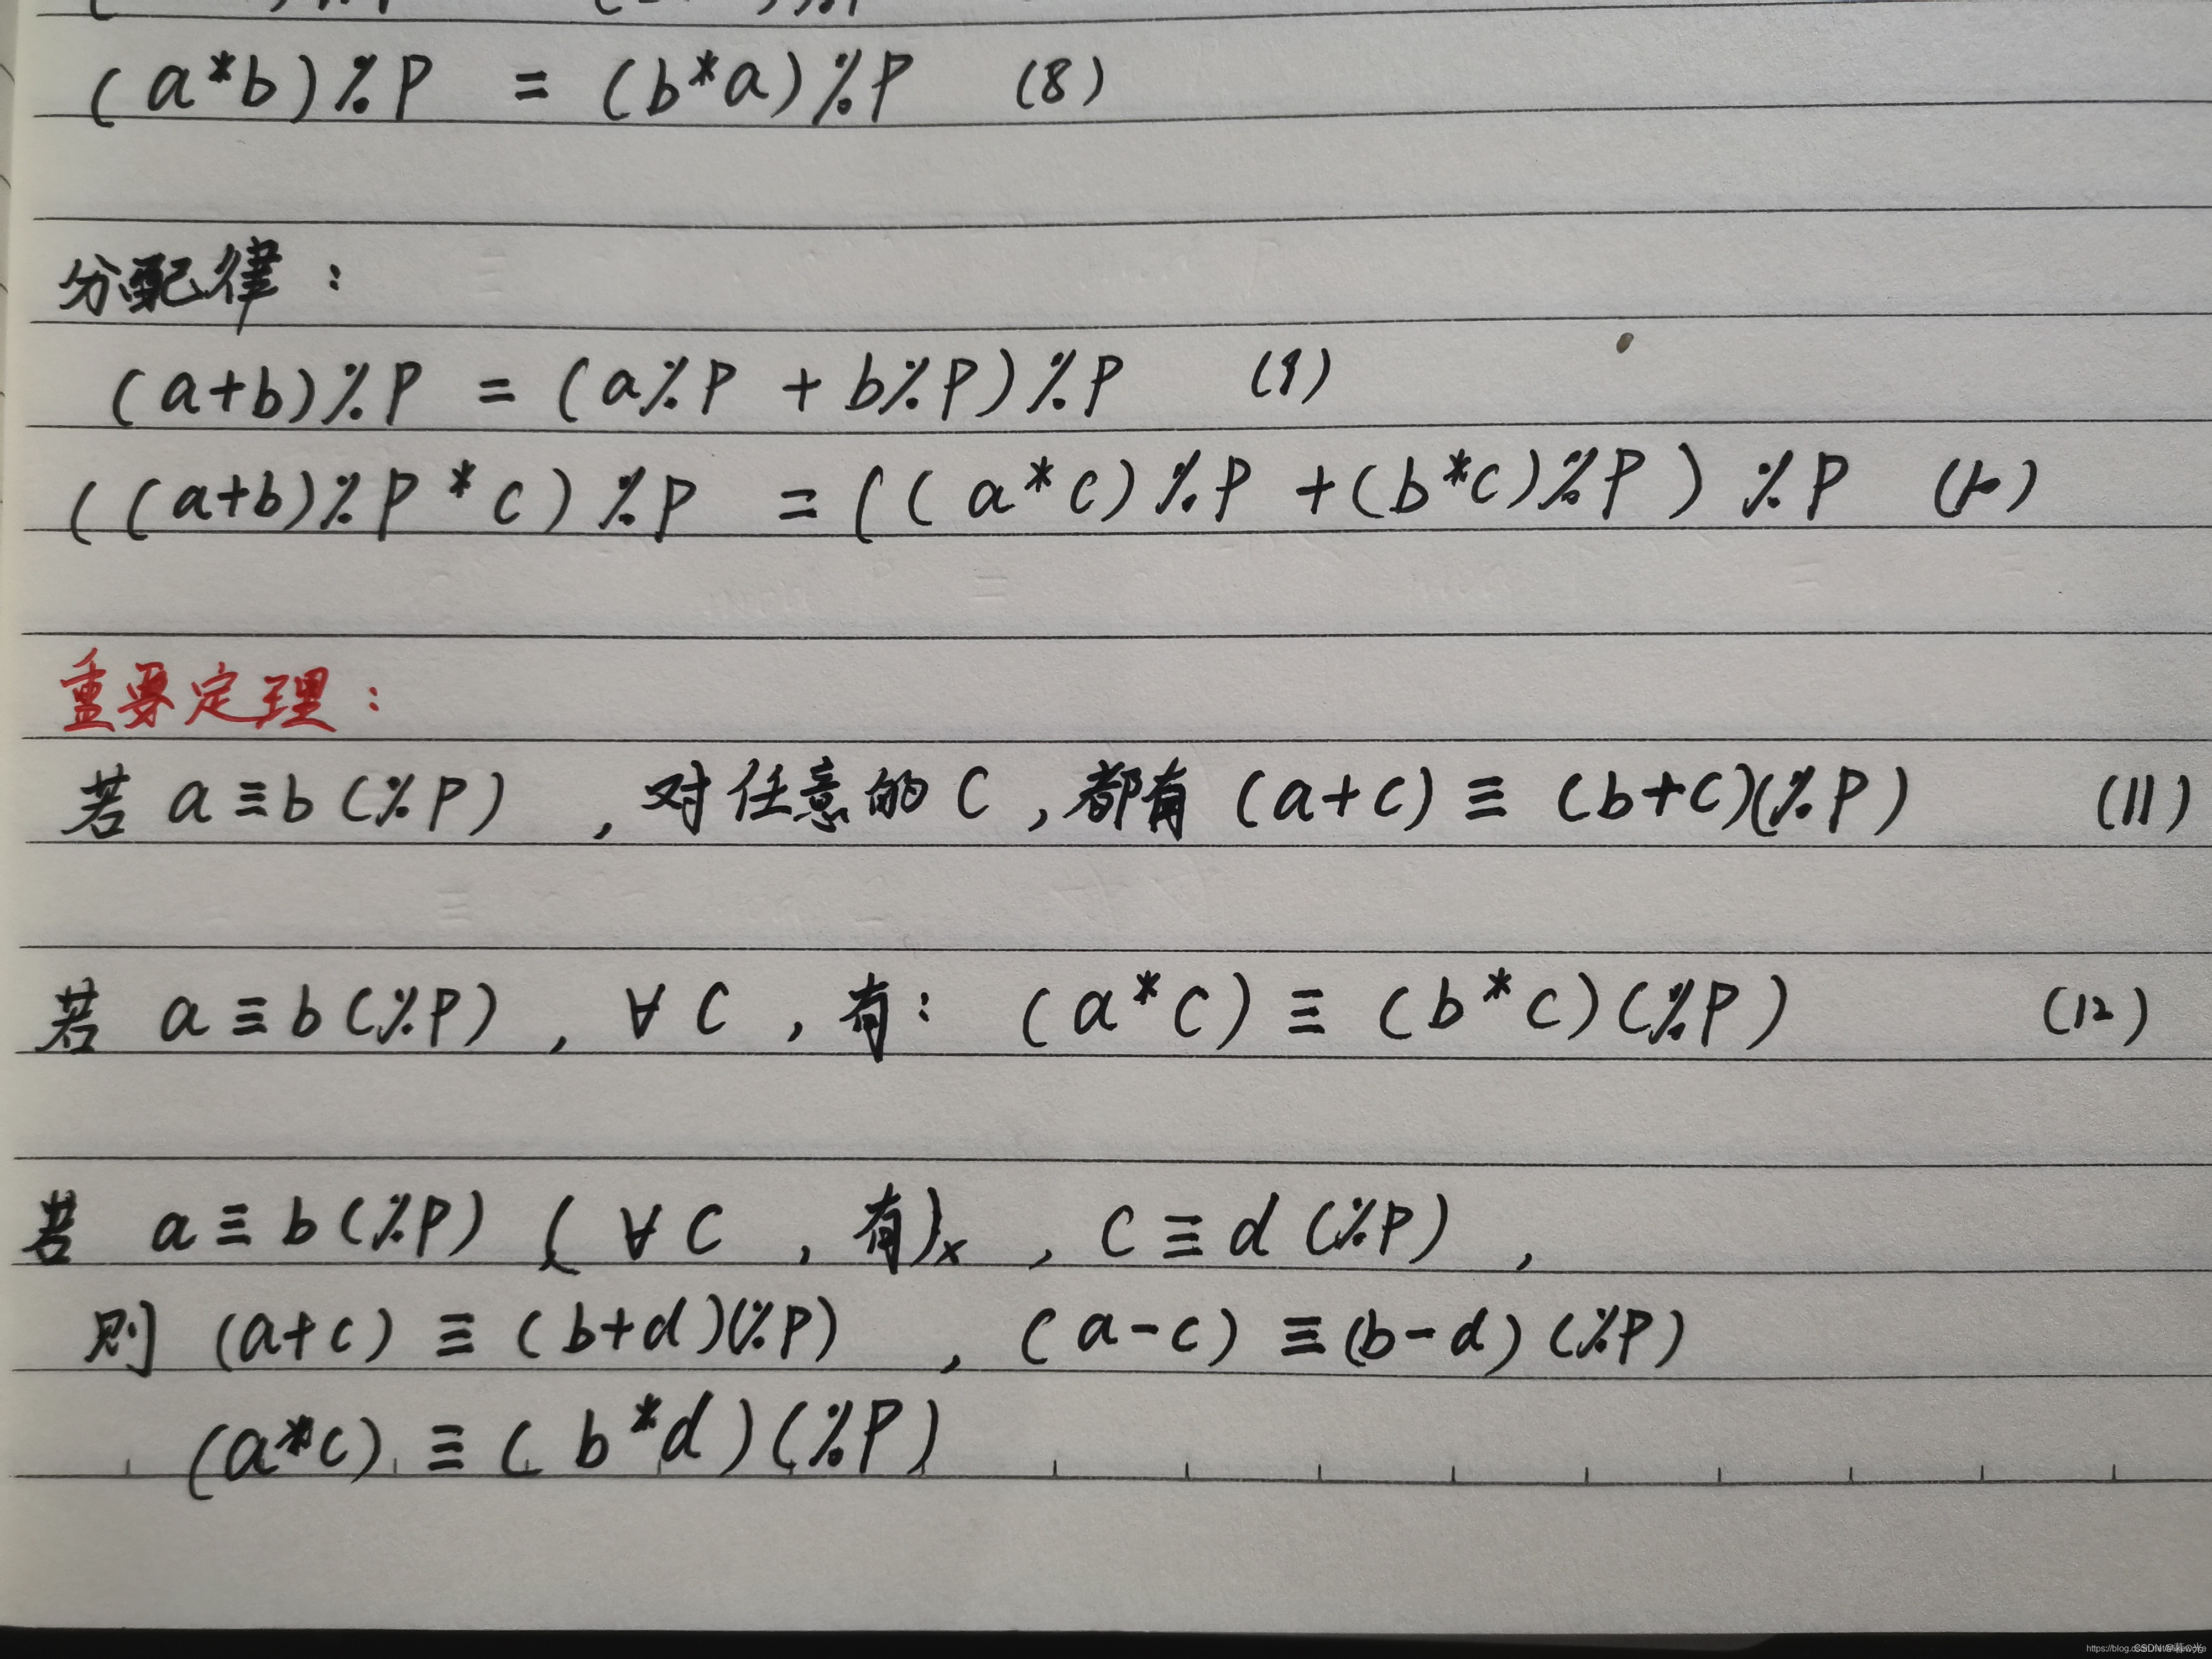 (a*b)%P = (b*a)%P (8)
分配律：
(a+b)%P = (a%P + b%P)%P (9)
((a+b)%P * c)%P = ((a*c)%P +(b*c)%P)%P (10)
重要定理：
若 a≡b(%P) , 对任意的C , 都有 (a+c) ≡ (b+c)(%P) (11)
若 a≡b(%P) , ∀ C , 有： (a*c) ≡ (b*c)(%P) (12)
若 a≡b(%P) ( ∀ C , 有)x , C≡d (%P) ,
则 (a+c) ≡ (b+d)(%P) , (a-c) ≡(b-d)(%P)
(a*c) ≡ (b*d)(%P)
https://blog.
CSDN